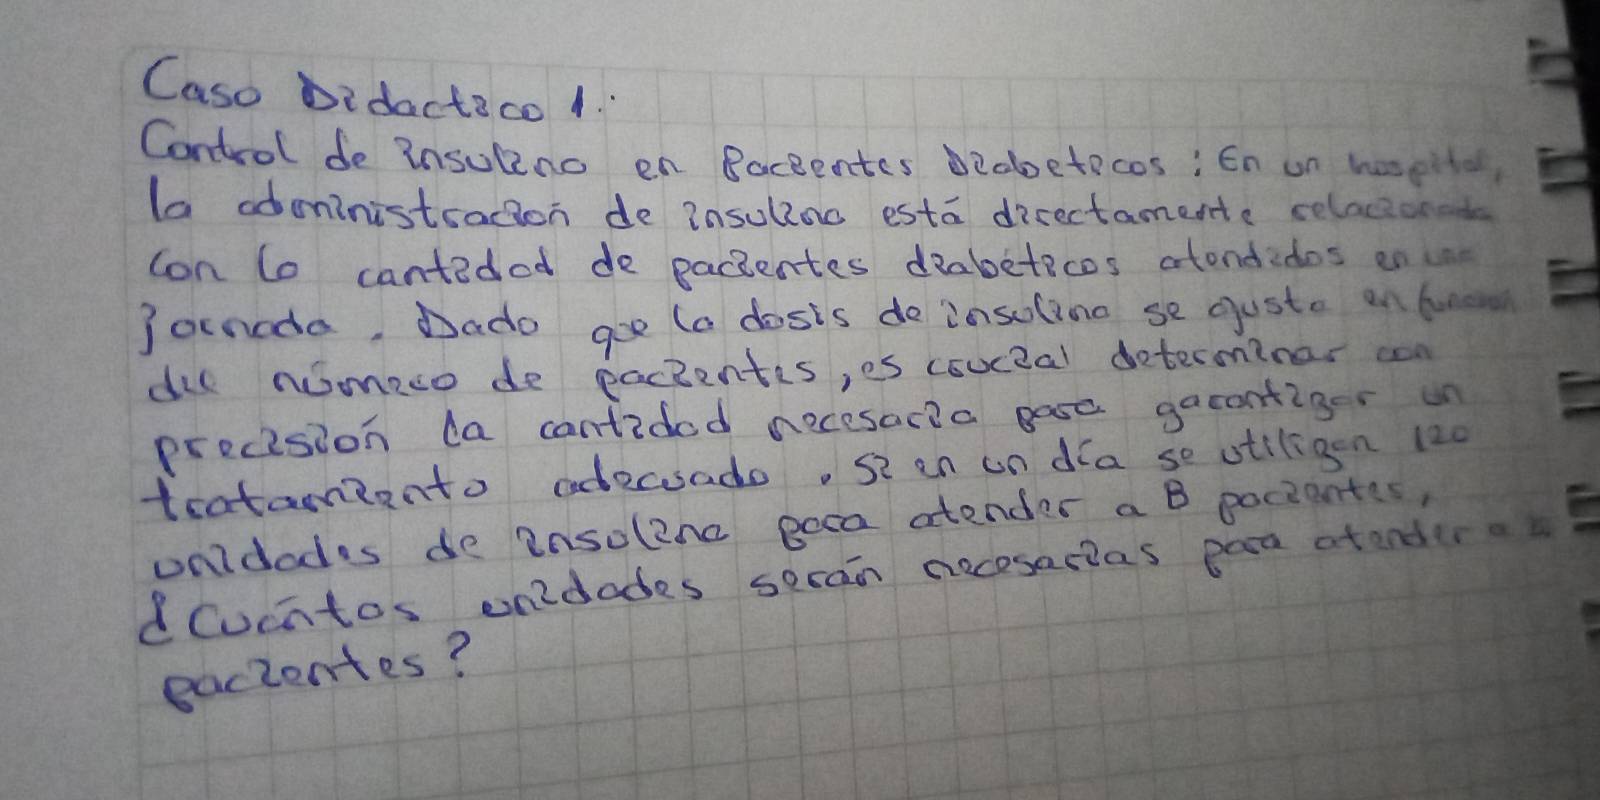 Caso Didactico 1.
Control de insulina en Pacientes Diabeticos: En un hospital,
la administración de insulina está directamente relacionada
con la cantidad de pacientes diabéticos atendidos en una
jornada. Dado que la dosis de insulina se ajusta en función
del número de pacientes, es crucial determinar con
precisión la cantidad necesaria para garantizar un
tratamiento adecuado. Si en un día se utilizan 120
unidades de insulina para atender a 8 pacientes,
¿Cuántas unidades serán necesarias para atender a
pacientes?